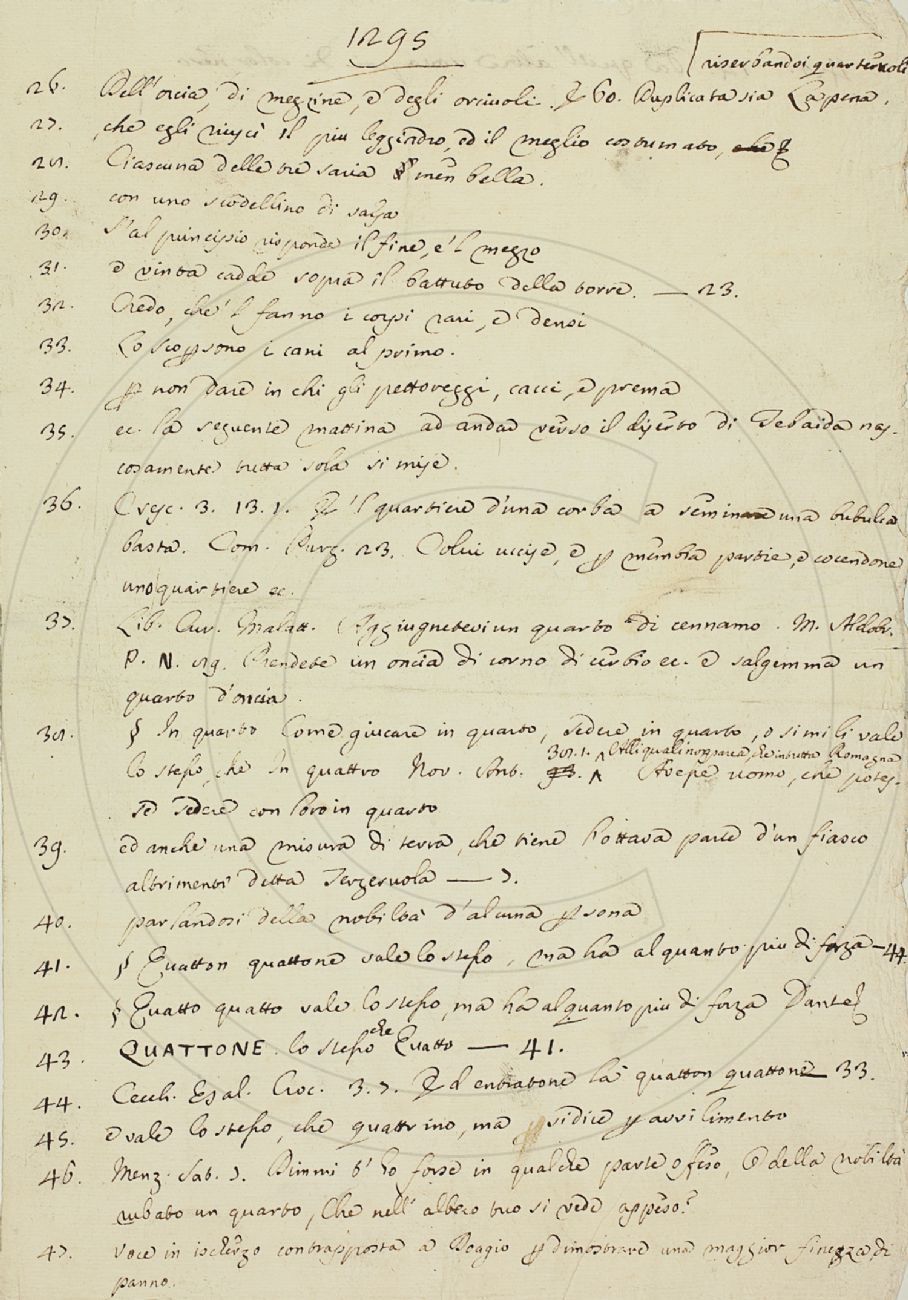 1295
riserbandoi quarteruoli
26. Dell'orcia, di mezzine, e degli orciuoli. 60. Duplicata sia La pena.
27. che egli riuscì il più leggiadro, ed il meglio costumato,
28. Ciascuna delle tre saria men bella.
29. con uno scodellino di salsa
30. S'al principio risponde il fine, e 'l mezzo
31. e vinta cadde sopra il battuto della torre. — 23.
32. Credo, che 'l fanno i corpi rari, e densi
33. Lo scopersono i cani al primo.
34. non dare in chi gli pettoreggi, cacci, e prema
35. ec. la seguente mattina ad andar verso il diserto di Tebaida nas-
cosamente tutta sola si mise.
36. Cresc. 3. 13. 1. E 'l quartiere d'una corba a seminare una bubulca
basta. Com. Purg. 23. Colui uccise, e per membra partie, e cocendone
uno quartiere ec.
37. Lib. Cur. Malatt. Aggiugnetevi un quarto di cennamo. M. Aldobr.
P. N. 29. Prendete un oncia di corno di cerbio ec. e salgemma un
quarto d'oncia.
38. § In quarto Come giucare in quarto, sedere in quarto, o simili vale
301. 1. Alli quali non parea, che in tutta Romagna
lo stesso, che In quattro Nov. Ant. Avesse uomo, che potes-
se sedere con loro in quarto
39. ed anche una misura di terra, che tiene l'ottava parte d'un fiasco
altrimenti detta Terzeruola — 7.
40. parlandosi della nobiltà d'alcuna persona
41. § Quatton quattone vale lo stesso, ma ha alquanto più di forza — 44
42. § Quatto quatto vale lo stesso, ma ha alquanto più di forza Dante
43. QUATTONE. lo stesso che Quatto — 41.
44. Cecch. Esal. Croc. 3. 7. Ed entratone là quatton quattone 33.
45. e vale lo stesso, che quattrino, ma si dice per avvilimento
46. Menz. Sat. 7. Dimmi t'ho forse in qualche parte offeso, O della nobiltà
rubato un quarto, Che nell'albero tuo si vede appeso?
47. voce in ischerzo contrapposta a Boagio per dimostrare una maggior finezza di
panno.